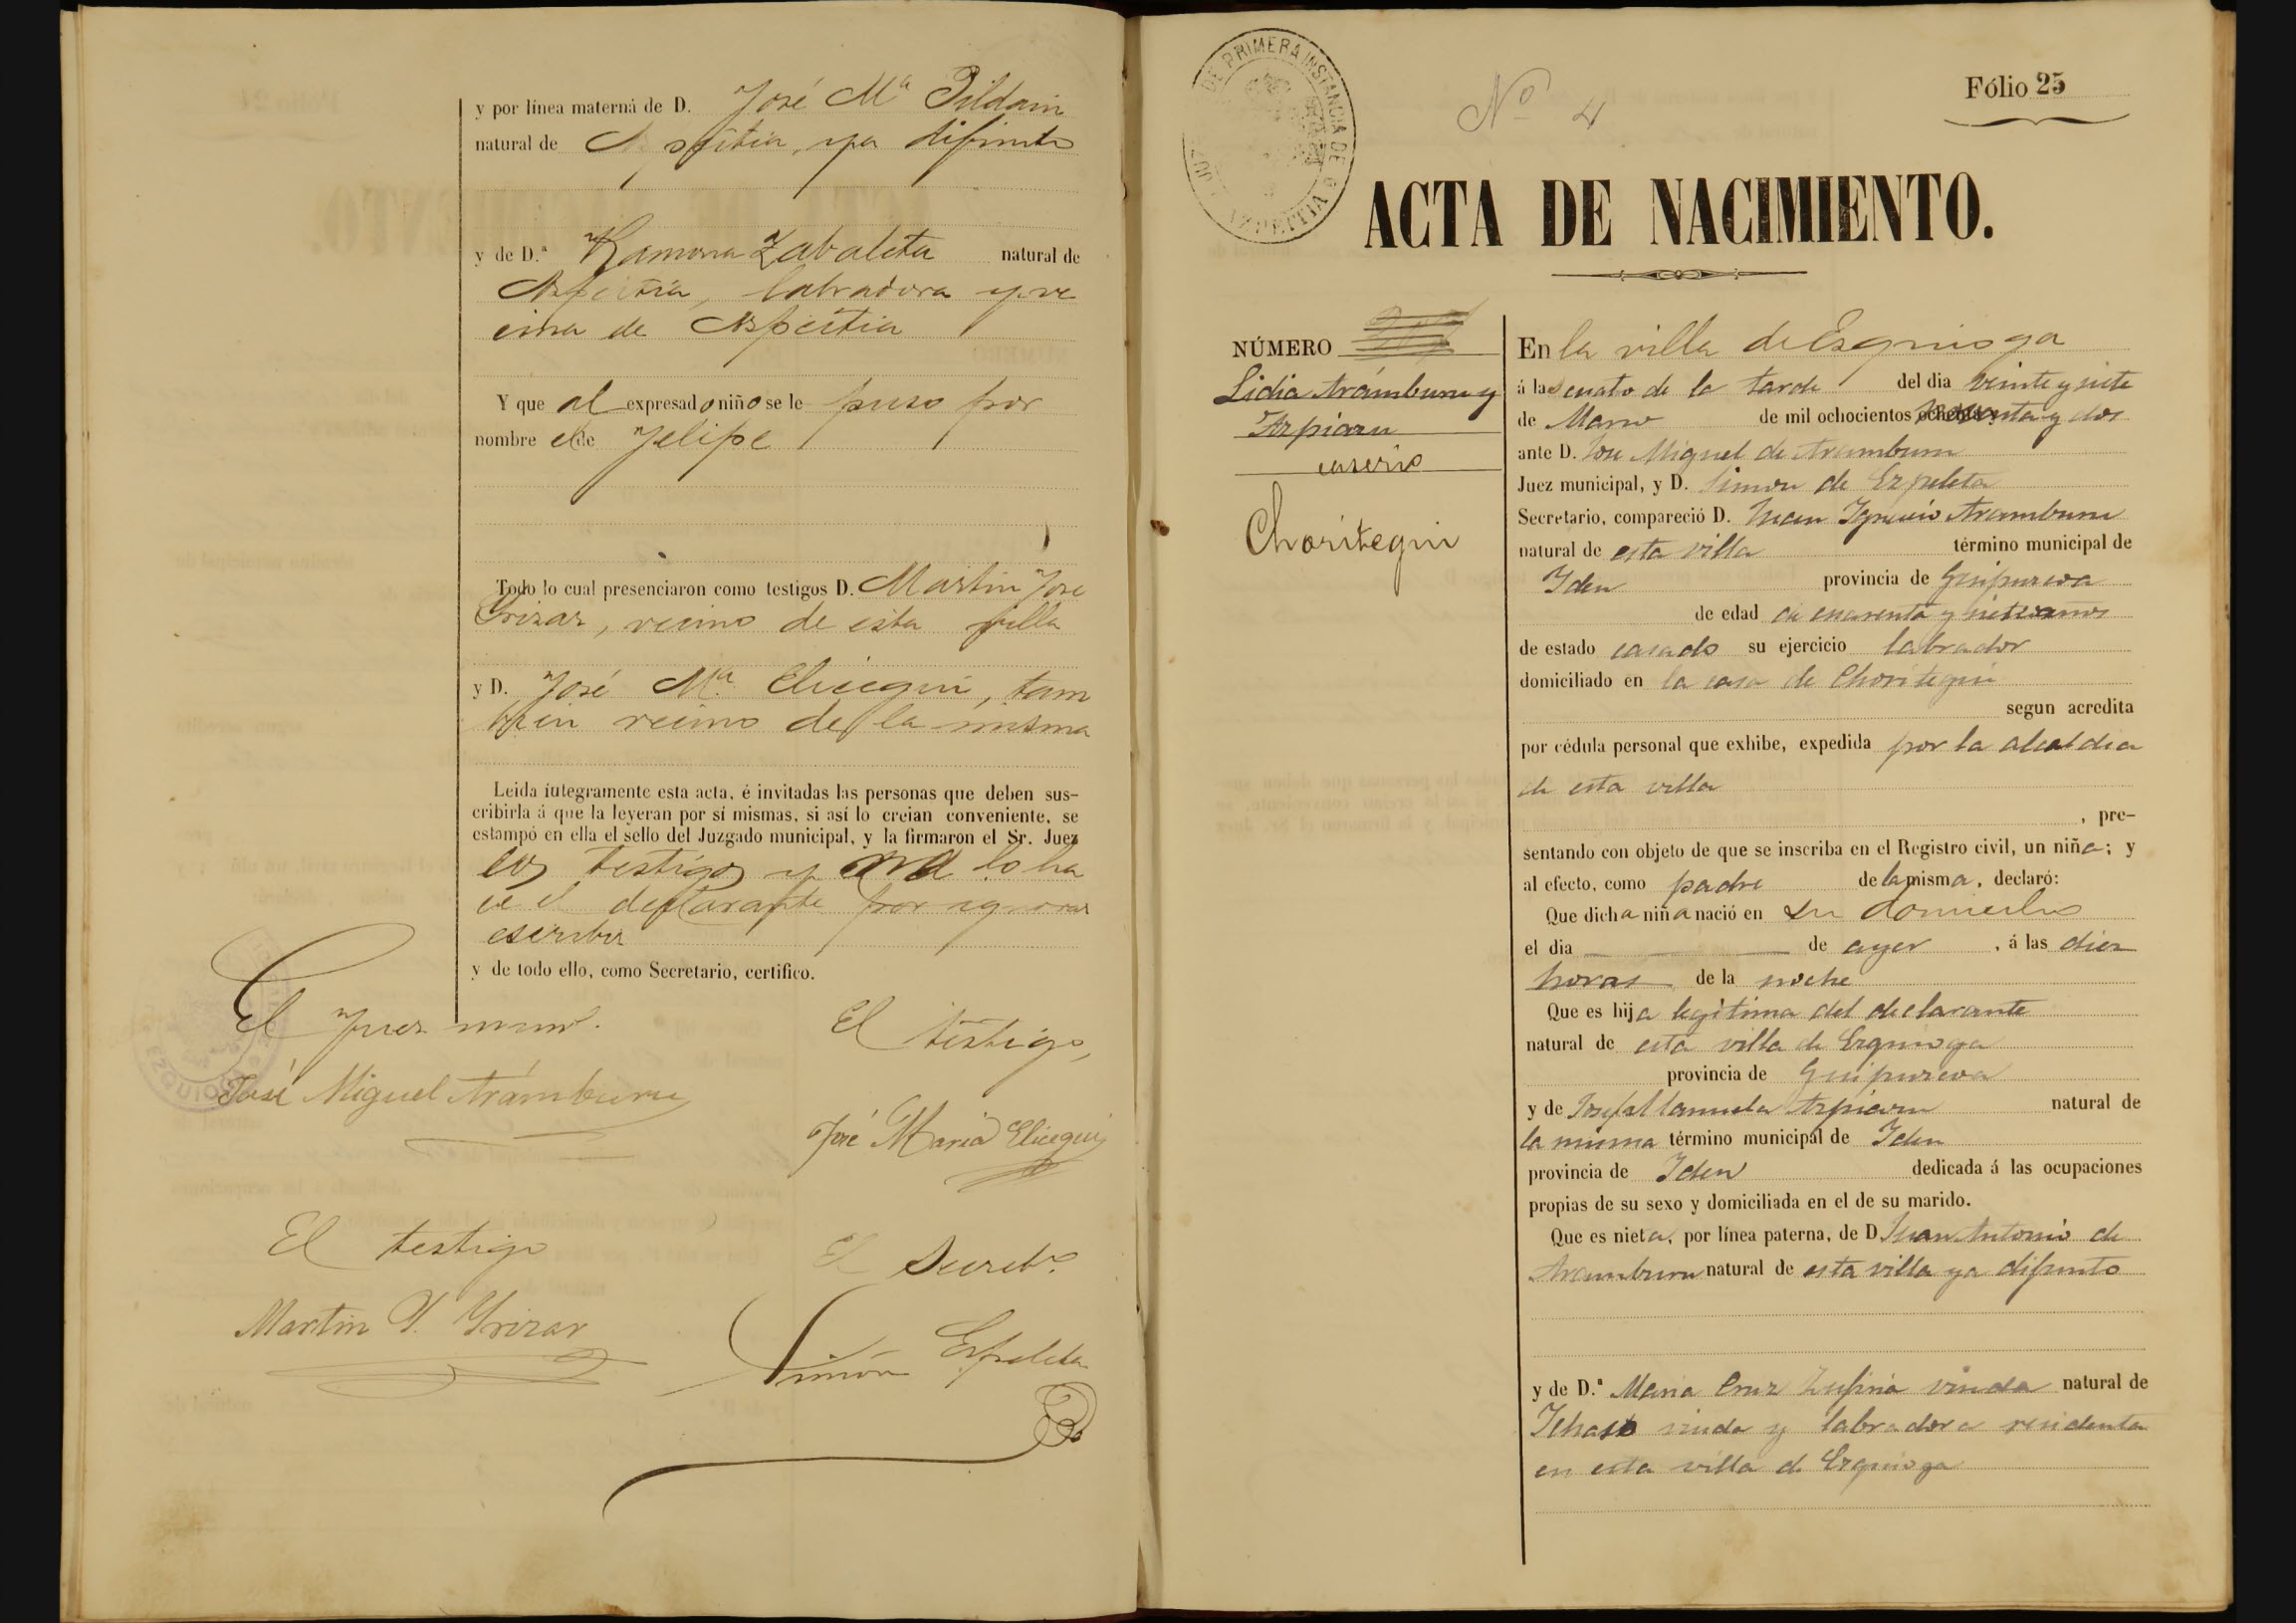 y por línea materna de D. José Mª Pildain
natural de Aspeitia, ya difunto
y de D.ª Ramona Zabaleta natural de
Aspeitia, labradora y ve
cina de Aspeitia
Y que al expresado niño se le puso por
nombre el de Felipe
Todo lo cual presenciaron como testigos D. Martin Jose
Yrizar, vecino de esta villa
y D. José Mª Elicegui, tam
bien vecino de la misma
Leida íntegramente esta acta, é invitadas las personas que deben sus-
cribirla á que la leyeran por sí mismas, si así lo creian conveniente, se
estampó en ella el sello del Juzgado municipal, y la firmaron el Sr. Juez
los testigos y no lo ha
ce el declarante por ignorar
escribir
y de todo ello, como Secretario, certifico.
El Juez munl.
El testigo,
José Miguel Arámburu
José Maria Elicegui
El testigo
El Secretº.
Martin J. Yrizar
Simón Ezpeleta
DE PRIMERA INSTANCIA DE AZPEITIA
Nº 4
Fólio 25
ACTA DE NACIMIENTO.
NÚMERO
Lidia Arámburu y
Azpiazu
caserio
Choritegui
En la villa de Ezquioga
á las cuatro de la tarde del dia veinte y siete
de Marzo de mil ochocientos noventa y dos
ante D. Jose Miguel de Aramburu
Juez municipal, y D. Simon de Ezpeleta
Secretario, compareció D. Juan Ygnacio Aramburu
natural de esta villa término municipal de
Iden provincia de Guipuzcoa
de edad de cuarenta y siete años
de estado casado su ejercicio labrador
domiciliado en la casa de Choritegui
segun acredita
por cédula personal que exhibe, expedida por la alcaldia
de esta villa
, pre-
sentando con objeto de que se inscriba en el Registro civil, un niña; y
al efecto, como padre de la misma, declaró:
Que dicha niña nació en su domicilio
el dia de ayer , á las diez
horas de la noche
Que es hija legitima del declarante
natural de esta villa de Ezquioga
provincia de Guipuzcoa
y de Josefa Manuela Azpiazu natural de
la misma término municipal de Iden
provincia de Iden dedicada á las ocupaciones
propias de su sexo y domiciliada en el de su marido.
Que es nieta, por línea paterna, de D Juan Antonio de
Aramburu natural de esta villa ya difunto
y de D.ª Maria Cruz viuda natural de
Ichaso viuda y labradora residenta
en esta villa de Ezquioga